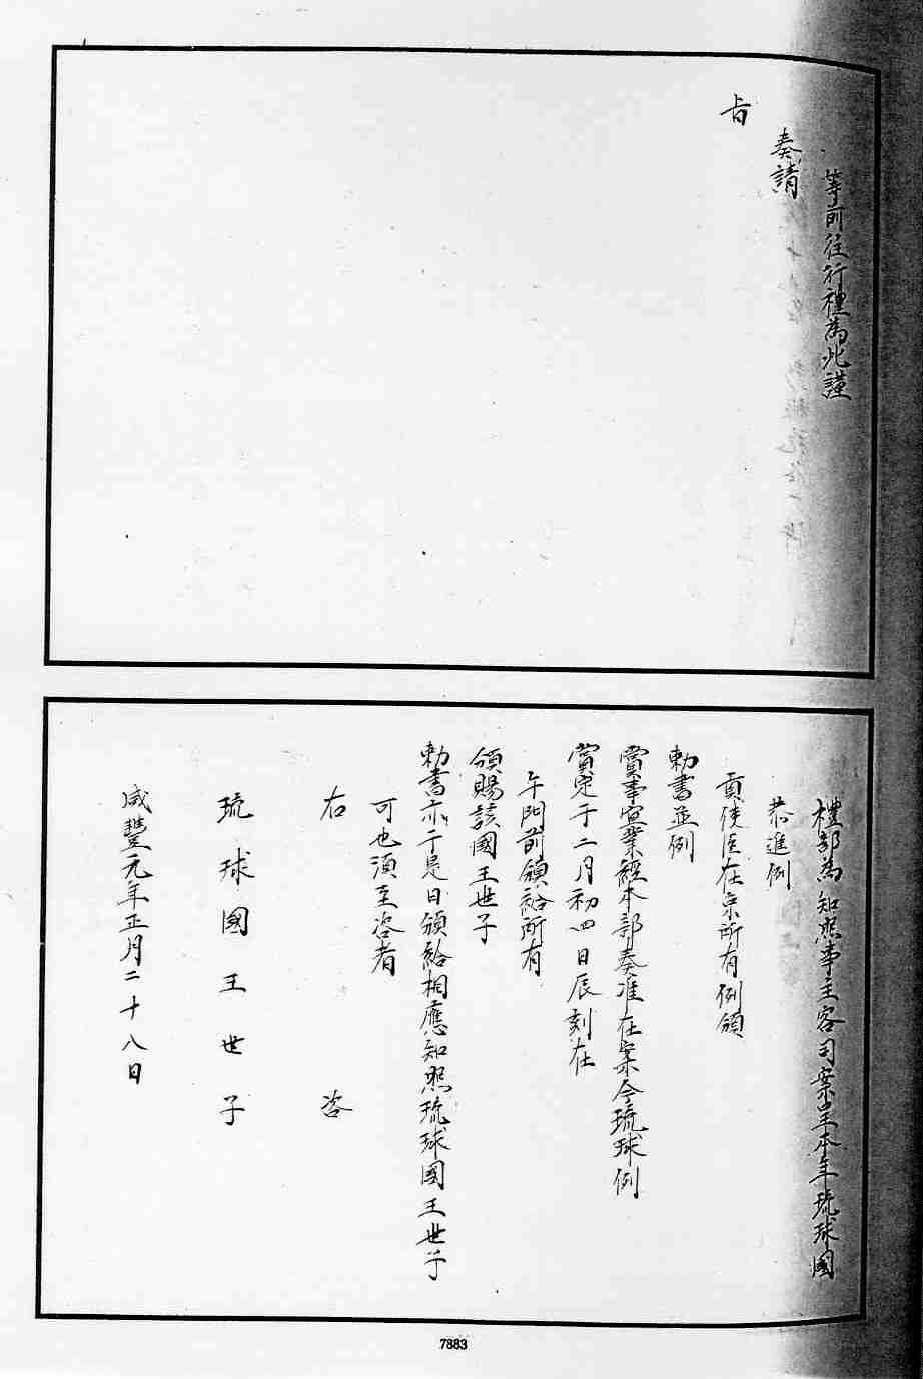 等前往行禮為此謹
奏請
旨
禮部為知照事主客司案呈本年琉球國
恭進例
貢使臣在京所有例頒
勅書並例
賞事宜業經本部奏准在案今琉球例
賞定于二月初四日辰刻在
午門前頒給所有
頒賜該國王世子
勅書亦于是日頒給相應知照琉球國王世子
可也須至咨者
右咨
琉球國王世子
咸豐元年正月二十八日
7883